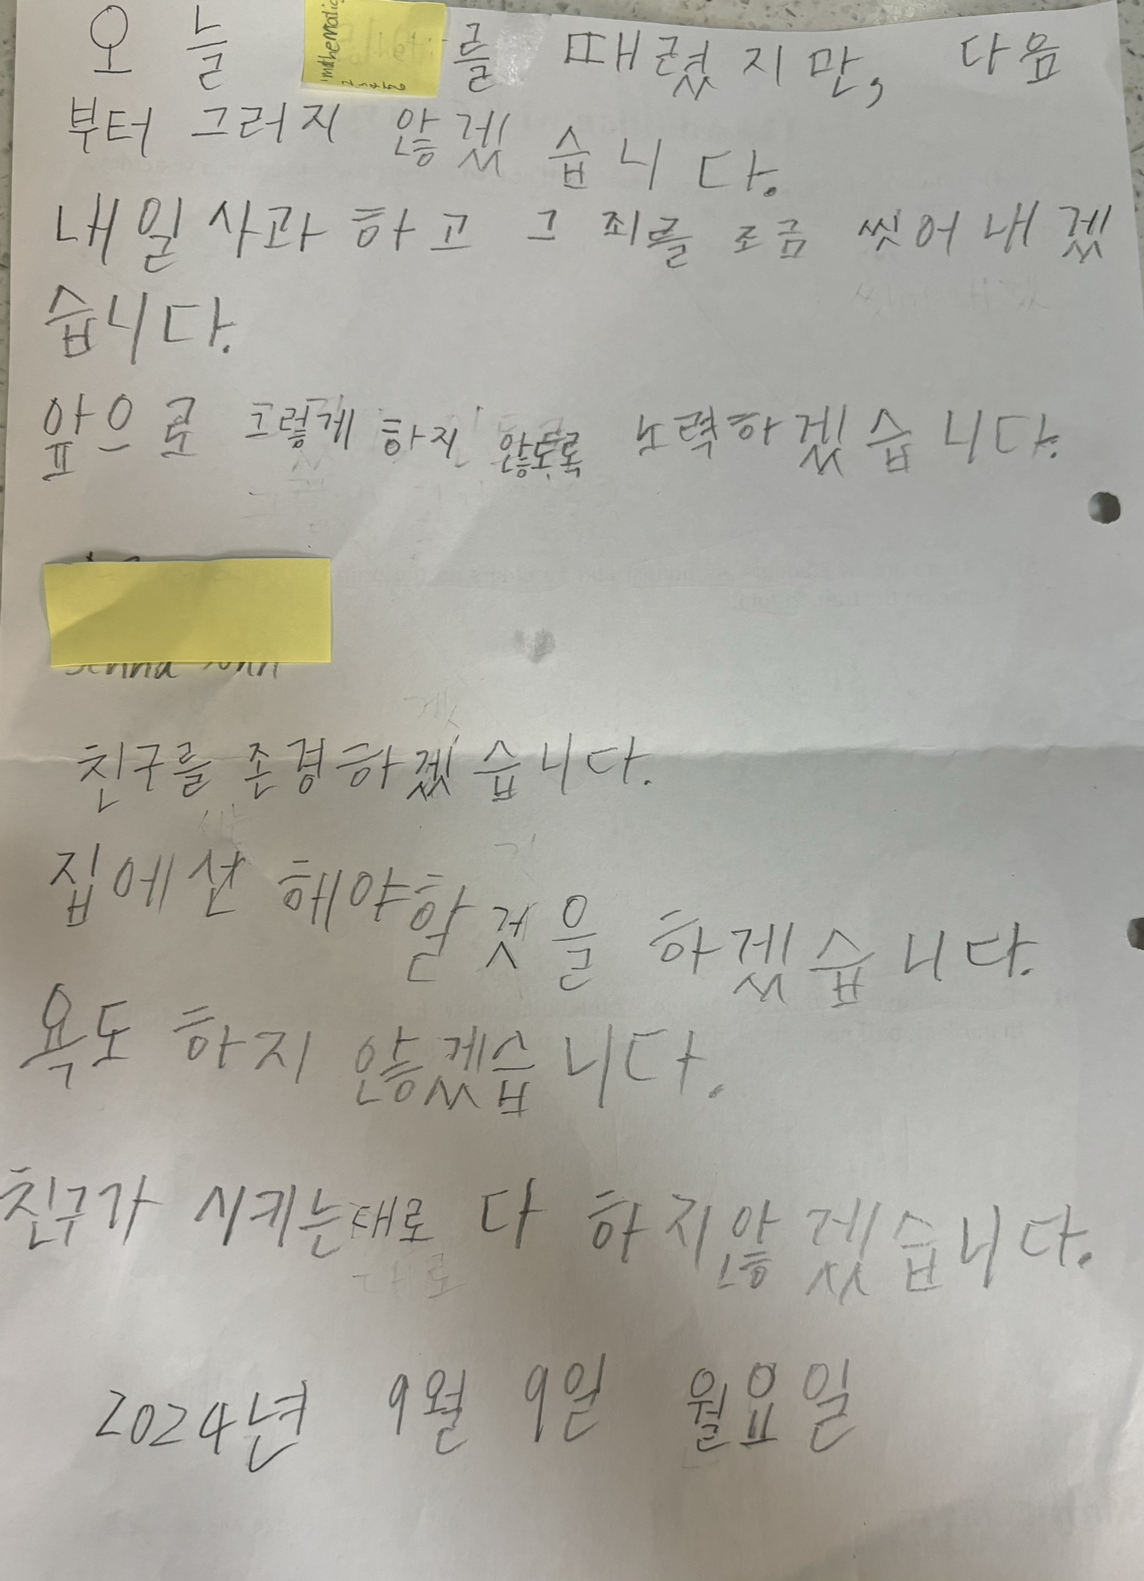 오늘 mathematic 를 때렸지만, 다음
부터 그러지 않겠습니다.
내일 사과하고 그 죄를 조금 씻어내겠
습니다.
앞으로 그렇게 하지 않도록 노력하겠습니다.
친구를 존경하겠습니다.
집에선 해야할것을 하겠습니다.
욕도 하지 않겠습니다.
친구가 시키는대로 다 하지않겠습니다.
2024년 9월 9일 월요일